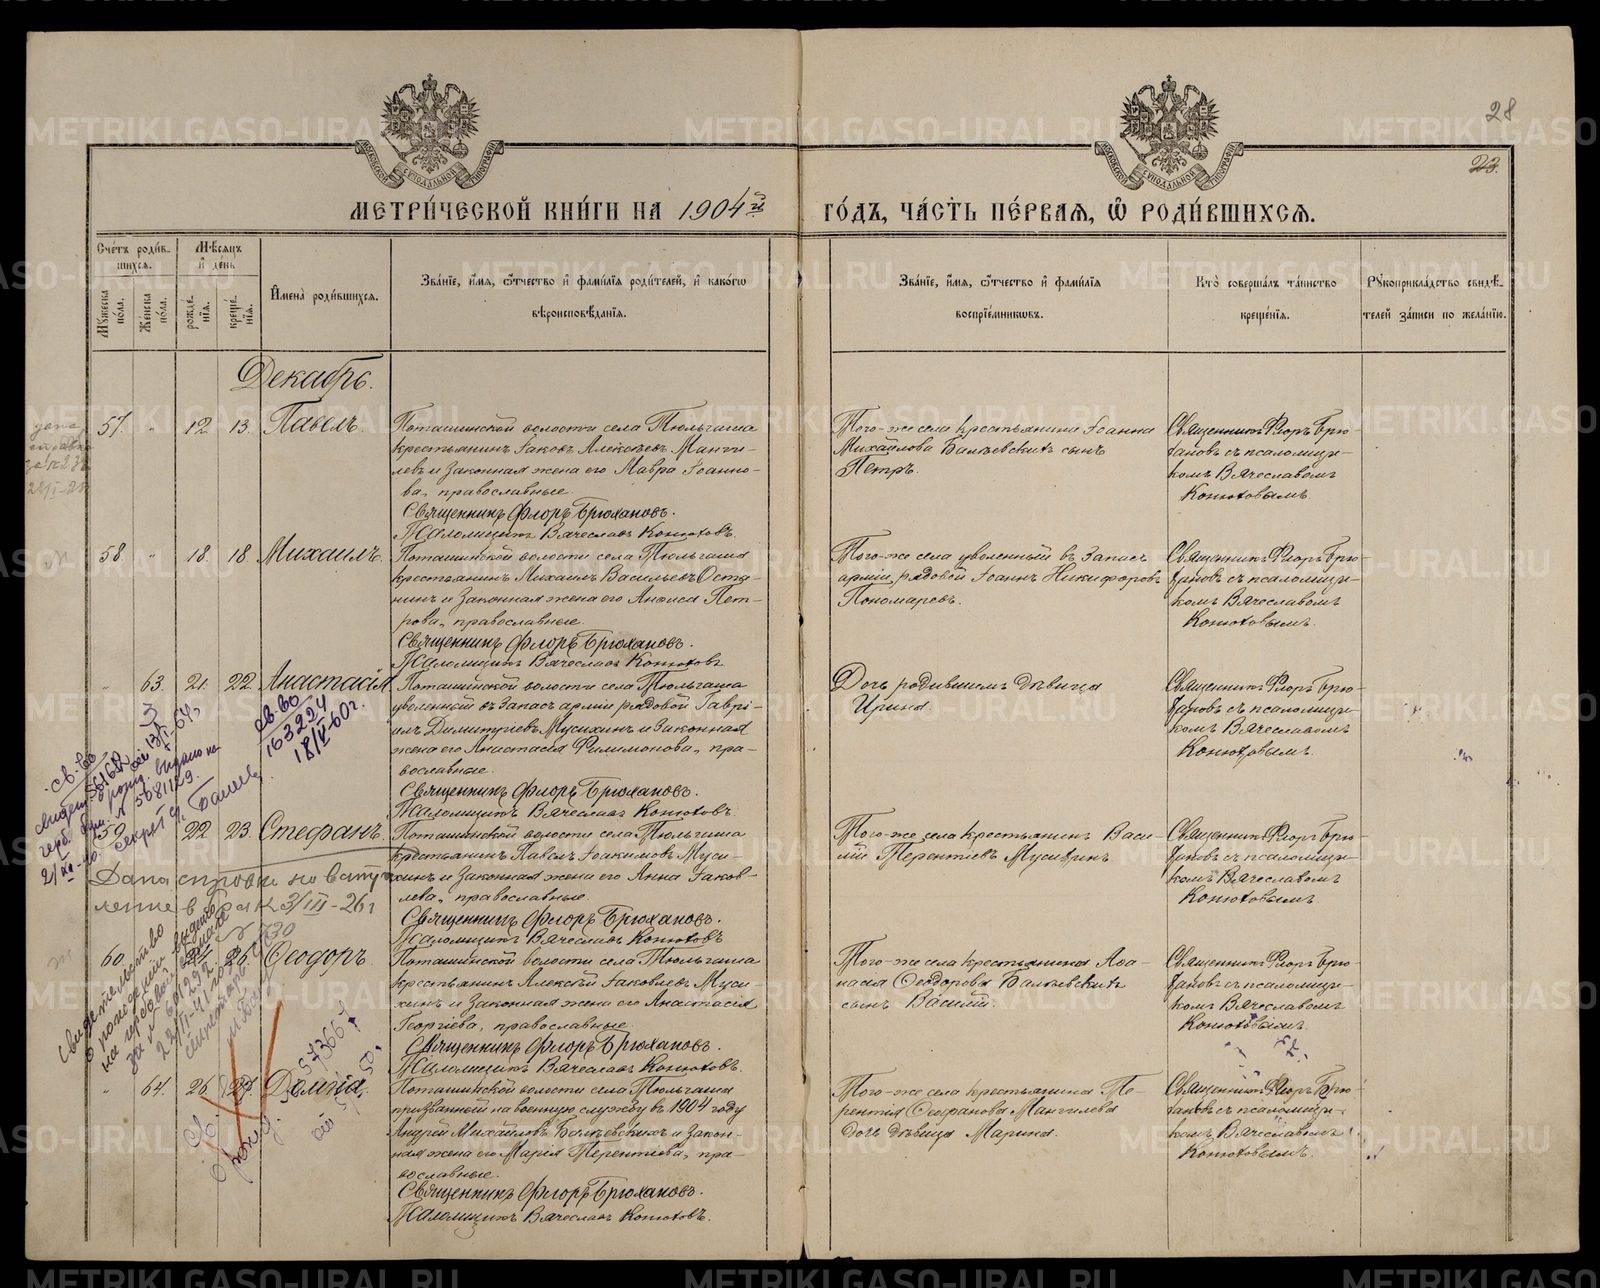 28
23.
МОСКОВСКОЙ СУНОДАЛЬНОЙ ТИПОГРАФІИ
МОСКОВСКОЙ СУНОДАЛЬНОЙ ТИПОГРАФІИ
МЕТРИ́ЧЕСКОЙ КНИ́ГИ НА 1904й ГО́ДЪ, ЧА́СТЬ ПЕ́РВАЯ, Ѽ РОДИ́ВШИХСЯ.
Сче́тъ роди́в-
шихся.
Му́жеска по́ла.
Же́нска по́ла.
Мѣ́сяцъ
и҆ де́нь
рожде́-
нїя.
креще́-
нїя.
И҆мена̀ роди́вшихся.
Зва́нїе, и҆́мя, ѻ҆́тчество и҆ фами́лїя роди́телей, и҆ како́гѡ
вѣроисповѣ́данїя.
Зва́нїе, и҆́мя, ѻ҆́тчество и҆ фами́лїя
воспрїе́мниковъ.
Кто̀ соверша́лъ та́инство
креще́нїя.
Рꙋкоприкла́дство свидѣ́-
телей за́писи по жела́нїю.
Декабрь.
57. " 12. 13. Павелъ.
Поташинской волости села Тюльгаша
крестьянинъ Іаковъ Алексѣевъ Манги-
левъ и законная жена его Мавра Іоанно-
ва, православные.
Священникъ Флоръ Брюхановъ.
Псаломщикъ Вячеславъ Конюховъ.
Того-же села крестьянина Іоанна
Михайлова Балаевскихъ сынъ
Петръ.
Священникъ Флоръ Брю-
хановъ съ псаломщи-
комъ Вячеславомъ
Конюховымъ.
58. " 18. 18. Михаилъ.
Поташинской волости села Тюльгаша
крестьянинъ Михаилъ Васильевъ Оста-
нинъ и законная жена его Анфиса Пет-
рова, православные.
Священникъ Флоръ Брюхановъ.
Псаломщикъ Вячеславъ Конюховъ
Того-же села уволенный въ запасъ
арміи рядовой Іоаннъ Никифоровъ
Пономаревъ.
Священникъ Флоръ Брю-
хановъ съ псаломщи-
комъ Вячеславомъ
Конюховымъ.
" 63. 21. 22. Анастасія.
Поташинской волости села Тюльгаша
уволенный въ запасъ арміи рядовой Гаврі-
илъ Димитріевъ Мусихинъ и законная
жена его Анастасія Филимонова, пра-
вославные.
Священникъ Флоръ Брюхановъ.
Псаломщикъ Вячеславъ Конюховъ.
Дочь родившаго дѣвица
Ирина.
Священникъ Флоръ Брю-
хановъ съ псаломщи-
комъ Вячеславомъ
Конюховымъ.
св-во
163224
18/V-60г.
59. 22. 23. Стефанъ.
Поташинской волости села Тюльгаша
крестьянинъ Павелъ Іоакимовъ Муси-
хинъ и законная жена его Анна Іаков-
лева, православные.
Священникъ Флоръ Брюхановъ.
Псаломщикъ Вячеславъ Конюховъ
Того-же села крестьянинъ Васи-
лій Терентіевъ Мусихинъ
Священникъ Флоръ Брю-
хановъ съ псаломщи-
комъ Вячеславомъ
Конюховымъ.
Дана справка на вступ
ление в брак 3/III-26г
60. 24. 26. Ѳеодоръ.
Поташинской волости села Тюльгаша
крестьянинъ Алексѣй Іаковлевъ Муси-
хинъ и законная жена его Анастасія
Георгіева, православные.
Священникъ Флоръ Брюхановъ.
Псаломщикъ Вячеславъ Конюховъ.
Того-же села крестьянина Аѳа-
насія Ѳеодорова Балаевскихъ
сынъ Василій.
Священникъ Флоръ Брю-
хановъ съ псаломщи-
комъ Вячеславомъ
Конюховымъ.
свидетельство
о рождении выдано
" 64. 26. 27. Домна.
Поташинской волости села Тюльгаша
призванный на военную службу въ 1904 году
Андрей Михайловъ Балаевскихъ и закон-
ная жена его Марія Терентіева, пра-
вославные.
Священникъ Флоръ Брюхановъ.
Псаломщикъ Вячеславъ Конюховъ.
Того-же села крестьянина Те-
рентія Ѳеофанова Мангилева
дочь дѣвица Марина.
Священникъ Флоръ Брю-
хановъ съ псаломщи-
комъ Вячеславомъ
Конюховымъ.
METRIKI.GASO-URAL.RU